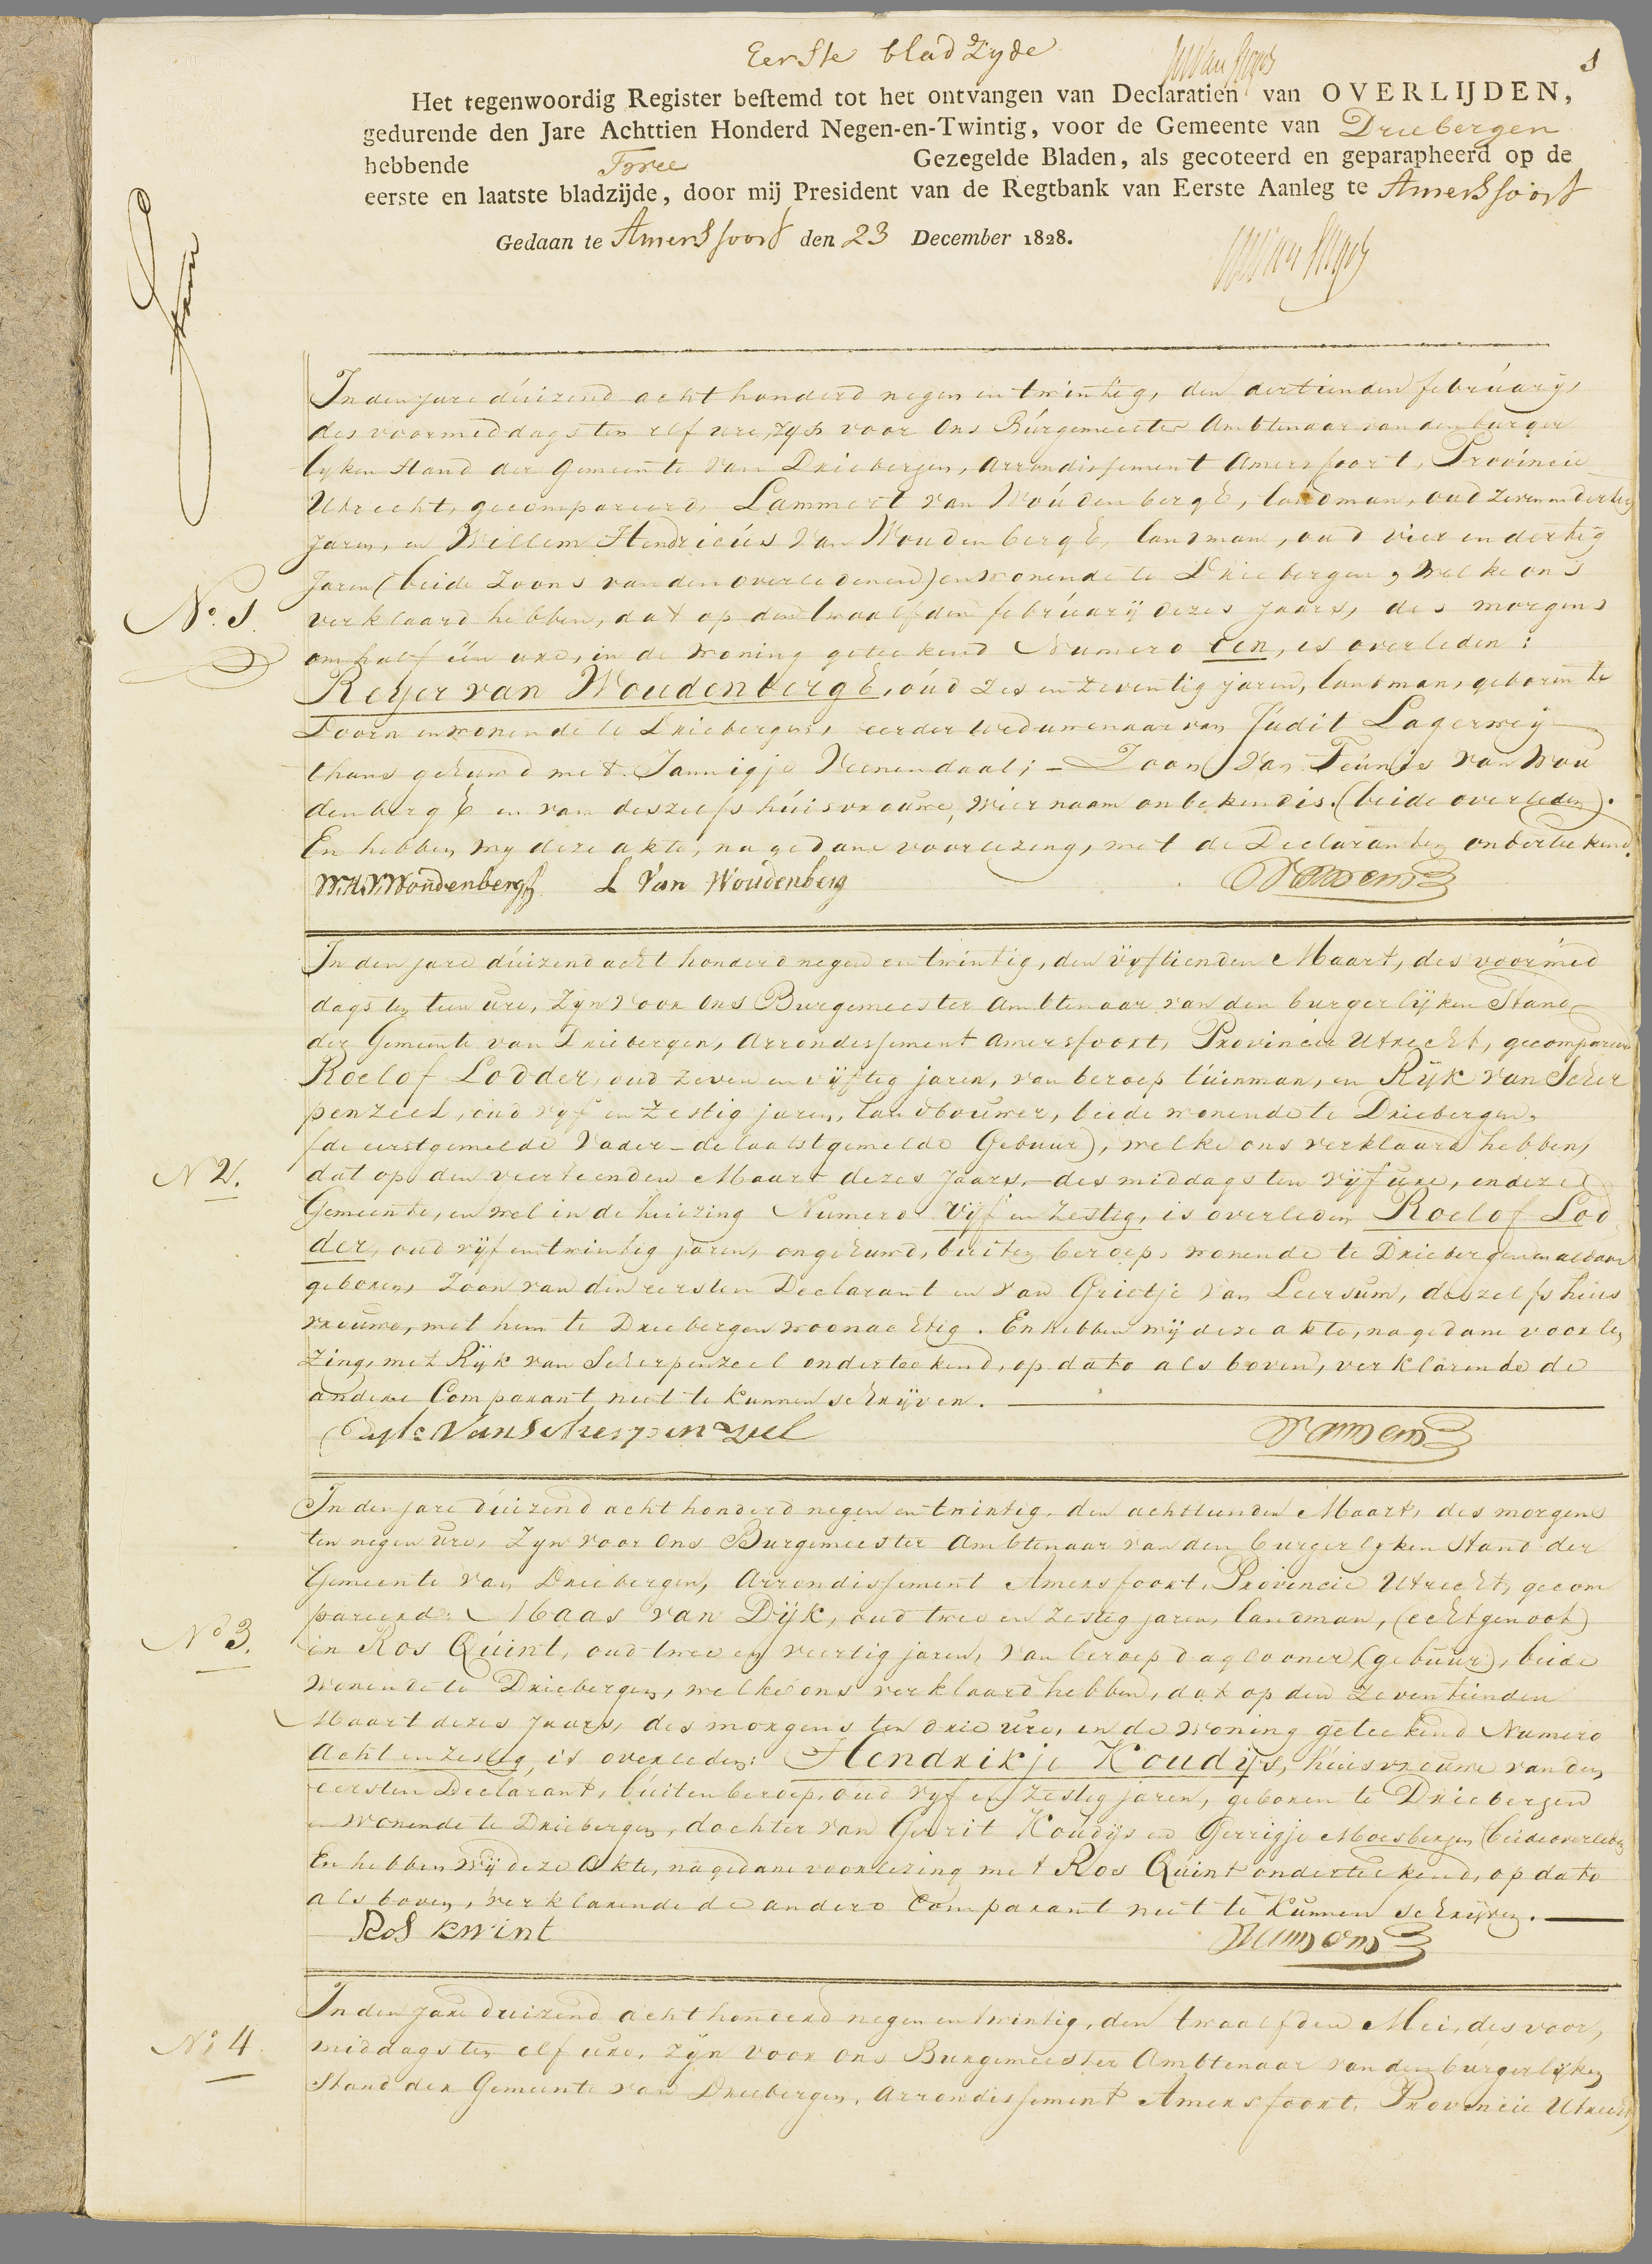 Eerste bladzyde
1
Het tegenwoordig Register bestemd tot het ontvangen van Declaratien van OVERLIJDEN,
gedurende den Jare Achttien Honderd Negen-en-Twintig, voor de Gemeente van Driebergen
hebbende Twee Gezegelde Bladen, als gecoteerd en geparapheerd op de
eerste en laatste bladzijde, door mij President van de Regtbank van Eerste Aanleg te Amersfoort
Gedaan te Amersfoort den 23 December 1828.
In den jare duizend acht honderd negen en twintig, den dertienden februarij
des voormiddags ten elf ure, zyn voor Ons Burgemeester Ambtenaar van den burger
lyken Stand der Gemeente van Driebergen, Arrondissement Amersfoort, Provincie
Utrecht, gecompareerd, Lammert van Woudenbergh, landman, oud zeven en dertig
jaren, en Willem Hendricus van Woudenbergh, landman, oud vier en dertig
Jaren (beide Zoons van den overledenen) en wonende te Driebergen, welke ons
No. 1.
verklaard hebben, dat op den twaalfden februarij dezes jaars, des morgens
om half een ure, in de woning geteekend Numero tien, is overleden:
Reyer van Woudenbergh, oud zes en zeventig jaren, landman, geboren te
Doorn en wonende te Driebergen, eerder weduwenaar van Judit Lagerweij
thans gehuwd met Jannigje Veenendaal; - Zoon van Teunis van Wou
denbergh en van deszelfs huisvrouwe, wier naam onbekend is. (beide overleden).
En hebben wy deze akte, na gedane voorlezing, met de Declaranten onderteekend.
W.H.V. Woudenbergh L Van Woudenberg
In den jare duizend acht honderd negen en twintig, den vyftienden Maart, des voormid
dags ten tien ure, zyn voor Ons Burgemeester Ambtenaar van den burgerlyken Stand
der Gemeente van Driebergen, Arrondissement Amersfoort, Provincie Utrecht, gecompareerd
Roelof Lodder, oud zeven en vijftig jaren, van beroep tuinman, en Rijk van Scher
penzeel, oud vyf en zestig jaren, landbouwer, beide wonende te Driebergen,
(de eerstgemelde Vader - de laatstgemelde Gebuur), welke ons verklaard hebben,
No 2.
dat op den veertienden Maart dezes Jaars, - des middags ten vijf ure, in deze
Gemeente, en wel in de huizing Numero Vijf en Zestig, is overleden Roelof Lod
der, oud vijf en twintig jaren, ongehuwd, buiten beroep, wonende te Driebergen en aldaar
geboren, Zoon van den eersten Declarant en van Grietje van Leersum, deszelfs huis
vrouwe, met hem te Driebergen woonachtig. En hebben wij deze akte, na gedane voorle
zing, met Rijk van Scherpenzeel onderteekend, op dato als boven, verklarende de
andere Comparant niet te kunnen schrijven.
Ryk Van Scherpenzeel
In den jare duizend acht honderd negen en twintig, den achttienden Maart, des morgens
ten negen ure, zyn voor Ons Burgemeester Ambtenaar van den burgerlyken Stand der
Gemeente van Driebergen, Arrondissement Amersfoort, Provincie Utrecht, gecom
pareerd: Maas van Dijk, oud twee en zestig jaren, landman, (echtgenoot)
No 3.
en Ros Quint, oud twee en veertig jaren, van beroep daglooner (gebuur), beide
wonende te Driebergen, welke ons verklaard hebben, dat op den zeventienden
Maart dezes Jaars, des morgens ten drie ure, in de woning geteekend Numero
Acht en zestig, is overleden: Hendrikje Koudijs, huisvrouwe van den
eersten Declarant, buiten beroep, oud vyf en zestig jaren, geboren te Driebergen
en wonende te Driebergen, dochter van Gerrit Koudijs en Gerrigje Moesbergen (beide overleden)
En hebben wij deze Akte, na gedane voorlezing met Ros Quint onderteekend, op dato
als boven, verklarende de andere Comparant niet te kunnen schrijven.
Ros kwint
In den jare duizend acht honderd negen en twintig, den twaalfden Mei, des voor
No 4.
middags ten elf ure, zyn voor ons Burgemeester Ambtenaar van den burgerlijken
Stand der Gemeente van Driebergen, Arrondissement Amersfoort, Provincie Utrecht,